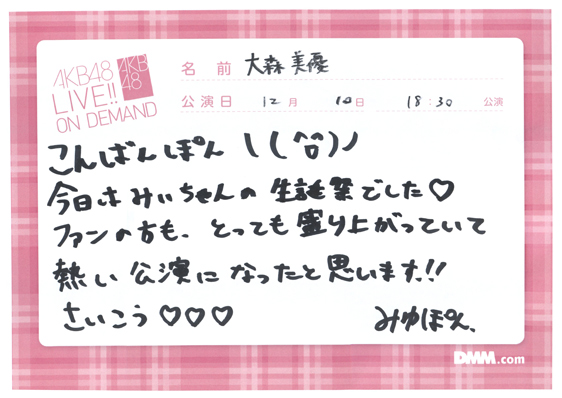 AKB48
LIVE!!
ON DEMAND
AKB
48
名 前 大森美優
公演日 12月 10日 18:30 公演
こんばんぽん \(^o^)ノ
今日はみぃちゃんの生誕祭でした♡
ファンの方も、とっても盛り上がっていて
熱い公演になったと思います!!
さいこう♡♡♡ みゆぽん、
DMM.com